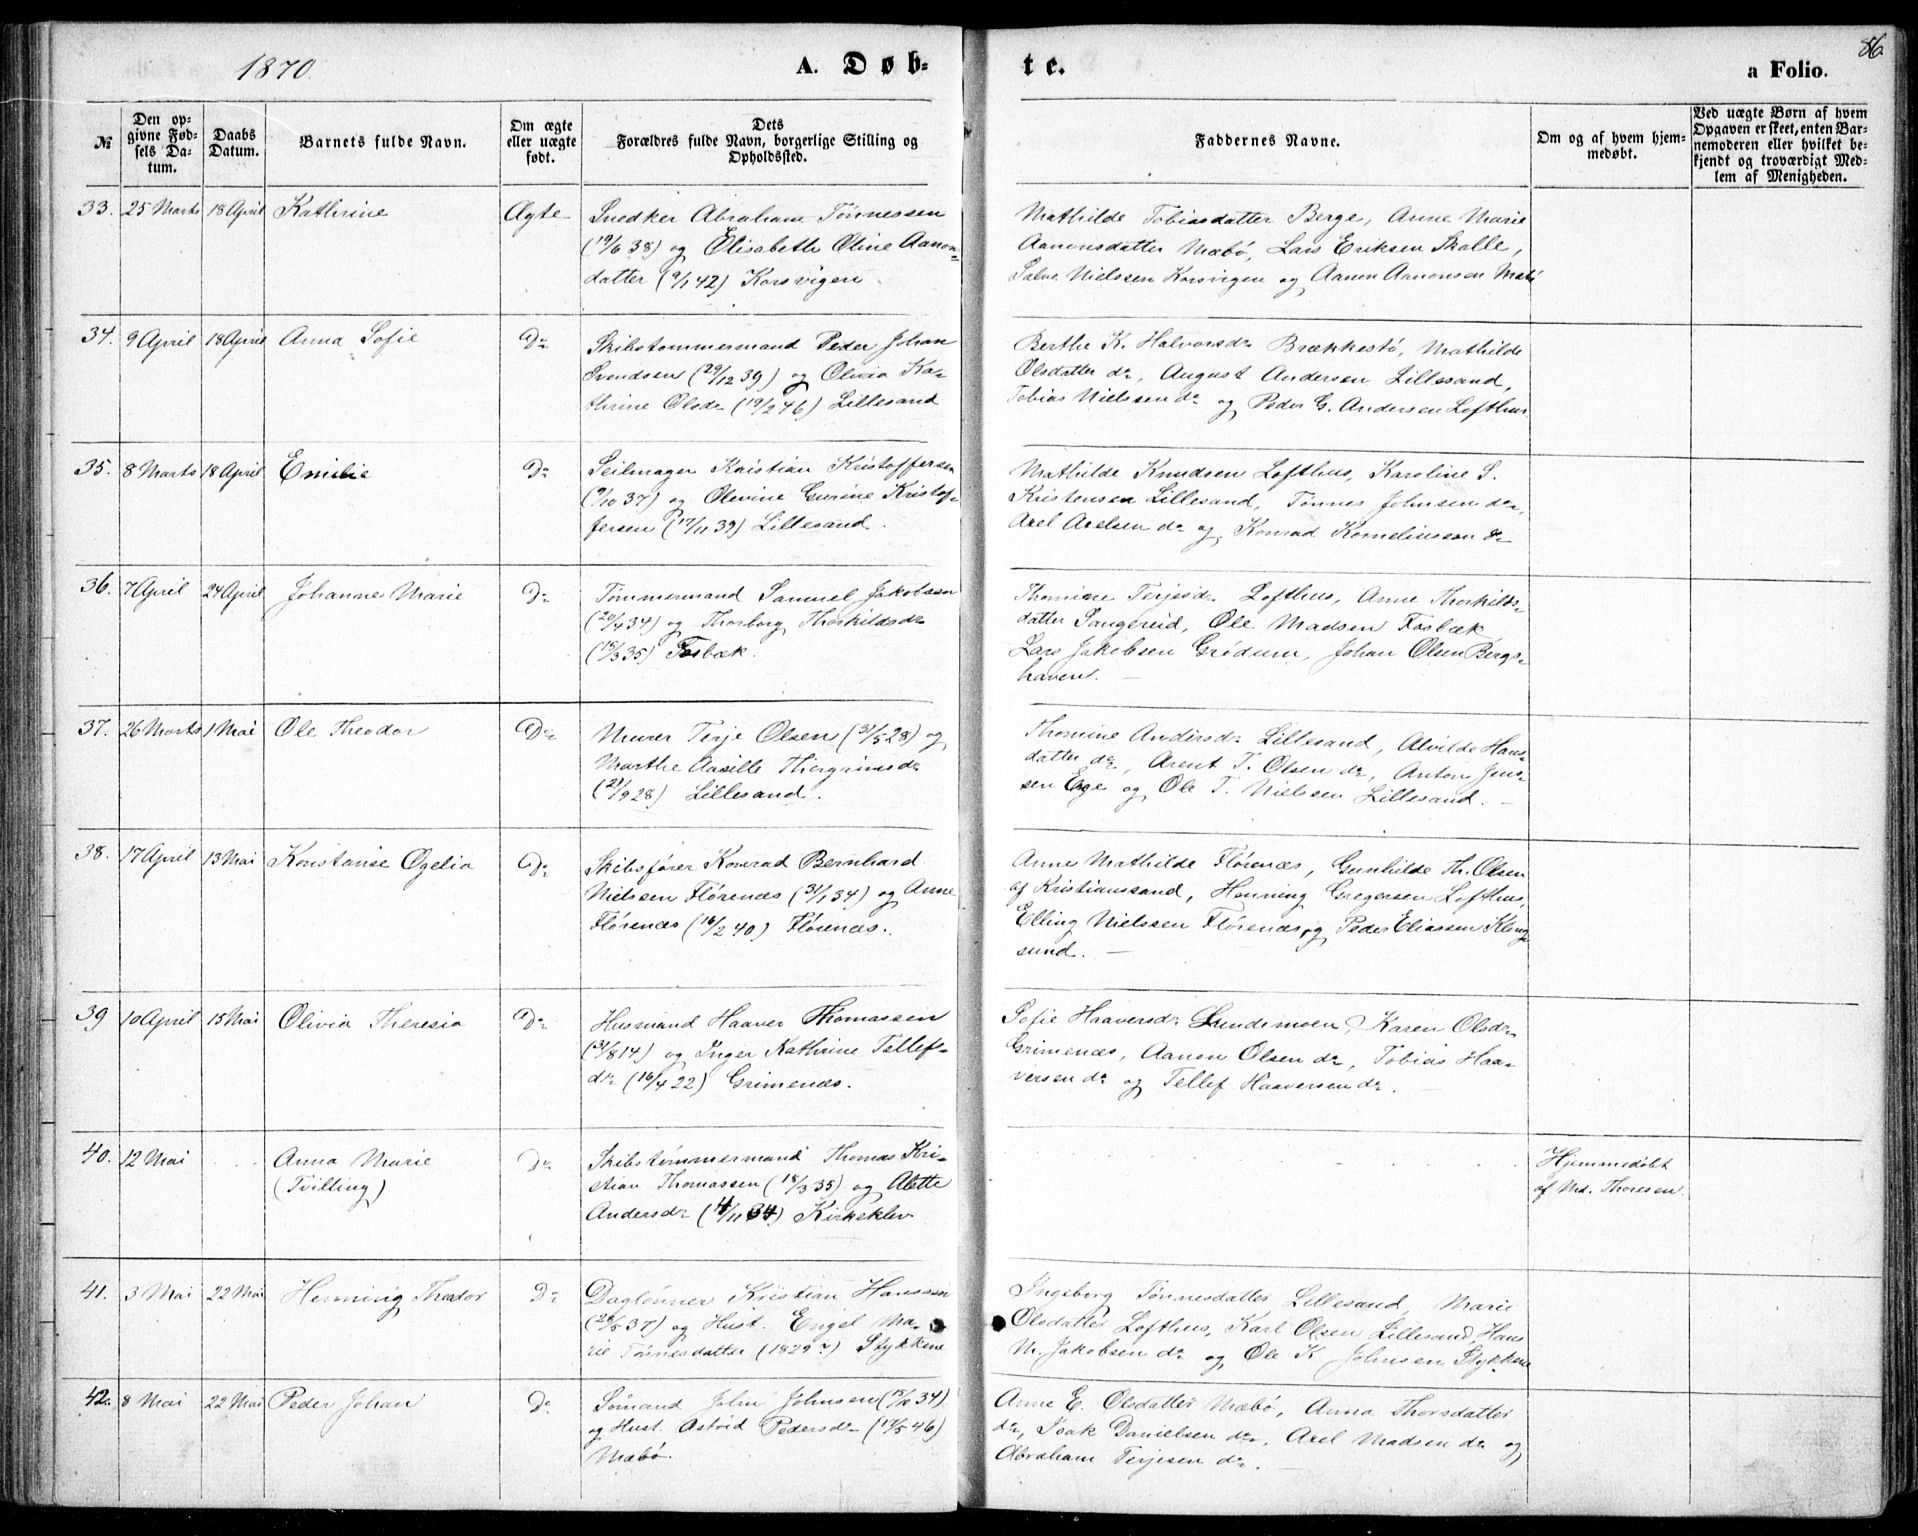 1870.
A. Døb-
te.
a Folio.
86.
№
Den op-
givne Fød-
sels Da-
tum.
Daabs
Datum.
Barnets fulde Navn.
Om ægte
eller uægte
født.
Dets
Forældres fulde Navn, borgerlige Stilling og
Opholdssted.
Faddernes Navne.
Om og af hvem hjem-
medøbt.
Ved uægte Børn af hvem
Opgaven er skeet, enten Bar-
nemoderen eller hvilket be-
kjendt og troværdigt Med-
lem af Menigheden.
33. 25 Marts 18 April Kathrine Ægte
Snedker Abraham Tønnessen
(19/6 38) og Elisabeth Oline Aanon-
datter (9/1 42) Korsvigen
Mathilde Tobiasdatter Berge, Anne Marie
Aanonsdatter Mæbø, Lars Eriksen Skalle,
Salve Nielssen Korsvigen og Aanon Aanonsen Mæbø
34. 9 April 18 April Anna Sofie Do
Skibstømmermand Peder Johan
Svendsen (29/12 39) og Olivia Ka-
thrine Olsdr (19/2 46) Lillesand
Berthe K. Halvorsdr Brækkestø, Mathilde
Olsdatter do, August Andersen Lillesand,
Tobias Nielssen do og Peder G. Andersen Lofthus
35. 8 Marts 18 April Emilie Do
Seilmager Kristian Kristoffersen
(9/10 37) og Olevine Gurine Kristof-
fersen (17/11 39) Lillesand.
Mathilde Knudsen Lofthus, Karoline S.
Kristensen Lillesand, Tønnes Johnsen do,
Axel Axelsen do og Konrad Korneliussen do
36. 7 April 24 April Johanne Marie Do
Tømmermand Samuel Jakobsen
(20/4 34) og Thorborg Thorkildsdr
(15/3 35) Fosbæk.
Thomine Terjesdr Lofthus, Anne Thorkilds-
datter Sangereid, Ole Madsen Fosbæk
Lars Jakobsen Grødum, Johan Olsen Bergs-
haven. —
37. 26 Marts 1 Mai Ole Theodor Do
Murer Terje Olsen (31/5 28) og
Marthe Aasille Thorgrimsdr
(21/9 28) Lillesand.
Thomine Andersdr Lillesand, Alvilde Hans-
datter do, Arent T. Olsen do, Anton Jens-
sen Ege og Ole T. Nielssen Lillesand. —
38. 17 April 13 Mai Konstanse Ogelia Do
Skibsfører Konrad Bernhard
Nielsen Flørenæs (31/1 34) og Anne
Flørenæs (16/2 40) Flørenæs.
Anne Mathilde Flørenæs, Gunhilde Th. Olsen
af Kristianssand, Henning Gregersen Lofthus,
Elling Nielssen Flørenæs, og Peder Eliassen Kling-
sund. —
39 10 April 15 Mai Olivia Theresia Do
Husmand Haaver Thomassen
(31/8 14) og Inger Kathrine Tellefs-
dr (16/4 22) Grimenæs.
Sofie Haaversdr Lundemoen, Karen Olsdr
Grimenæs, Aanon Olsen do, Tobias Haa-
versen do og Tellef Haaversen do.
40. 12 Mai Anna Marie Do
(Tvilling)
Skibstømmermand Thomas Kri-
stian Thomassen (18/3 35) og Alette
Andersdr (11/11 34) Kirkeklev
Hjemmedøbt
af Md. Thoresen.
41. 3 Mai 22 Mai Henning Theodor Do
Dagløner Kristian Hanssen
(28/5 37) og Hust. Engel Ma-
rie Tønnesdatter (1829?) Stykkene
Ingeborg Tønnesdatter Lillesand, Marie
Olsdatter Lofthus, Karl Olsen Lillesand, Hans
M. Jakobsen do og Ole K. Johnsen Stykkene
42. 8 Mai 22 Mai Peder Johan Do
Sømand John Johnsen (15/10 34)
og Hust. Astrid Pedersdr (17/5 46)
Mæbø.
Anne E. Olsdatter Mæbø, Anna Thorsdatter
do, Isak Danielsen do, Axel Madsen do og
Abraham Terjesen do. —